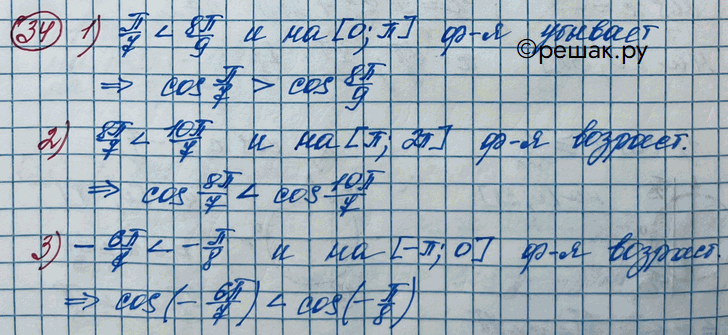 34 1) π/7 < 8π/9 и на [0; π] ф-я убывает
©решак.ру
⇒ cos π/7 > cos 8π/9
2) 8π/7 < 10π/7 и на [π; 2π] ф-я возраст.
⇒ cos 8π/7 < cos 10π/7
3) - 6π/7 < - π/8 и на [-π; 0] ф-я возраст.
⇒ cos(- 6π/7) < cos(- π/8)